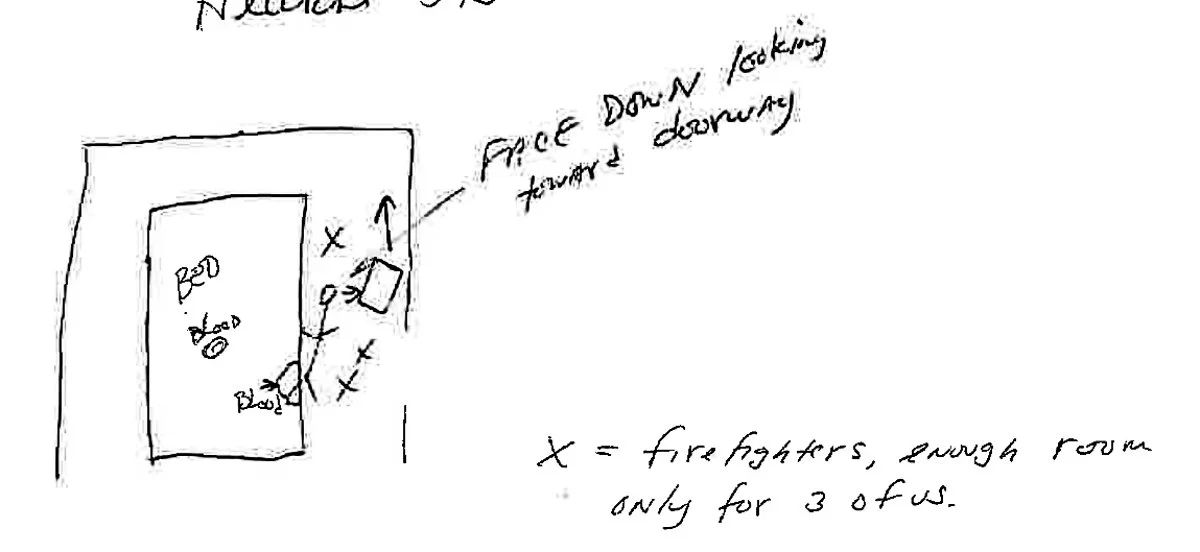 FACE DOWN looking
toward doorway
X
BED
BLOOD
X
X
BLOOD
X = firefighters, enough room
only for 3 of us.